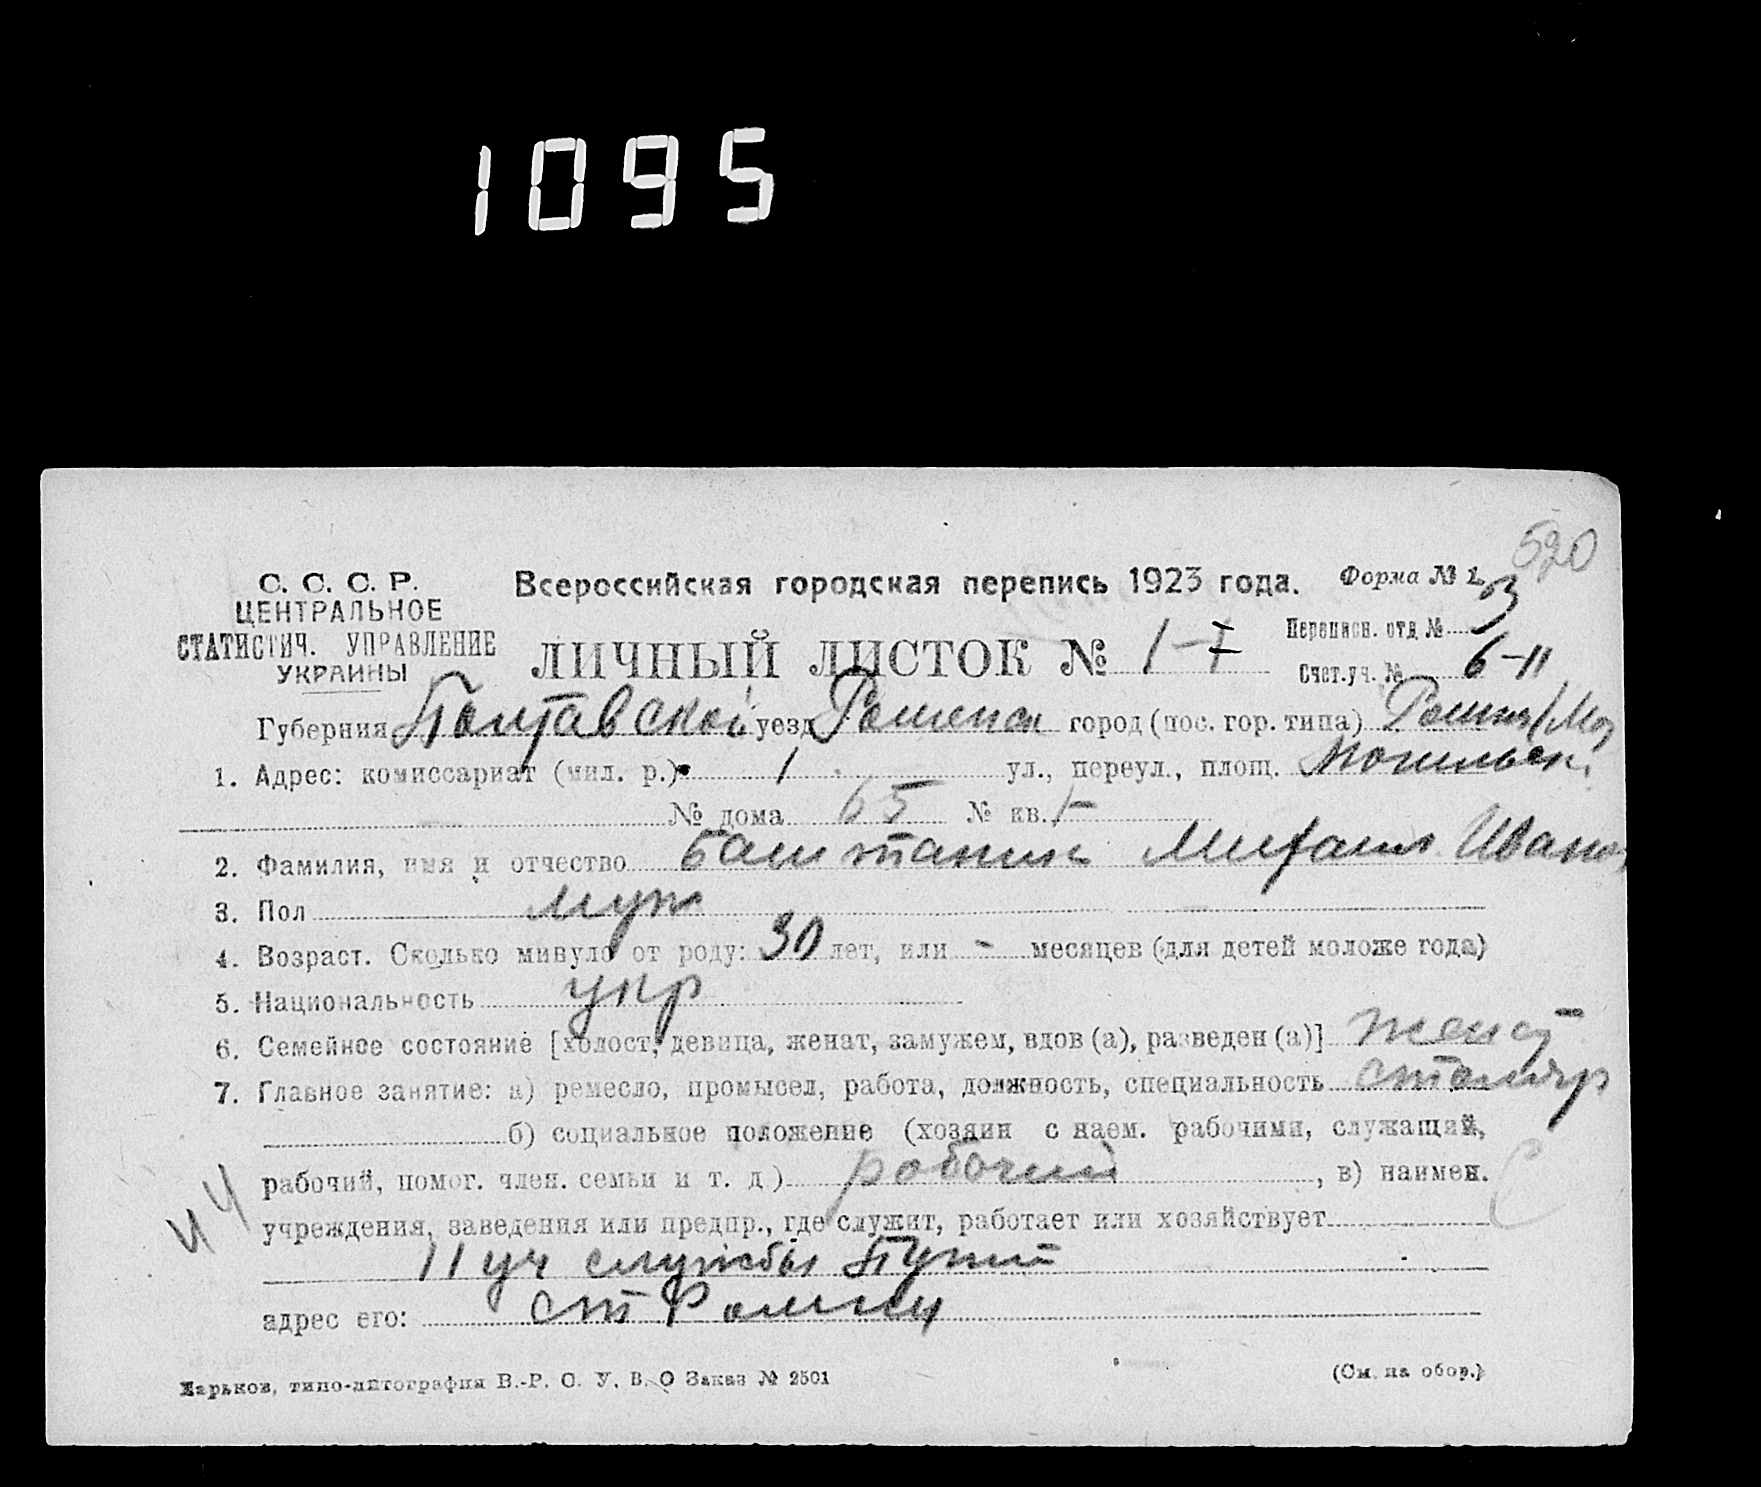 1095
520
С. С. С. Р.
ЦЕНТРАЛЬНОЕ
СТАТИСТИЧ. УПРАВЛЕНИЕ
УКРАИНЫ
Всероссийская городская перепись 1923 года.
Форма № 1.
ЛИЧНЫЙ ЛИСТОК № 1-7
Переписн. отд № 3
Счет.уч. № 6-11
Губерния Полтавской уезд Роменск город (пос. гор. типа) Ромни
1. Адрес: комиссариат (мил. р.) 1 ул., переул., площ.
№ дома 65 № кв. 1-
2. Фамилия, имя и отчество Баштаник Михаил Ивано
3. Пол муж
4. Возраст. Сколько минуло от роду: 30 лет, или - месяцев (для детей моложе года)
5. Национальность укр
6. Семейное состояние [холост, девица, женат, замужем, вдов (а), разведен (а)] женат
7. Главное занятие: а) ремесло, промысел, работа, должность, специальность столяр
б) социальное положение (хозяин с наем. рабочими, служащий,
рабочий, помог. член. семьи и т. д) рабочий, в) наимен.
учреждения, заведения или предпр., где служит, работает или хозяйствует
11 уч службы Пути
адрес его: ст Ромны
Харьков, типо-литография В.-Р. О. У. В. О Заказ № 2501
(См. на обор.)